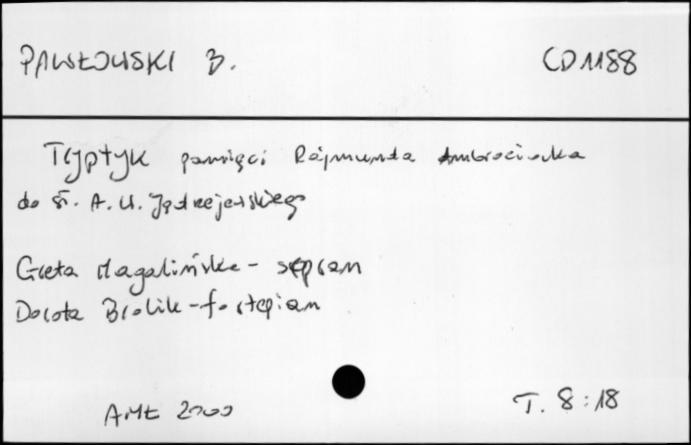 PAWŁOWSKI B. CD1188
Tryptyk pamięci Rajmunda Ambroziaka
do sł. A. W. Jędrzejewskiego
Greta Magalińska - sopran
Dorota Brolik - fortepian
AMŁ 2000 T. 8:18